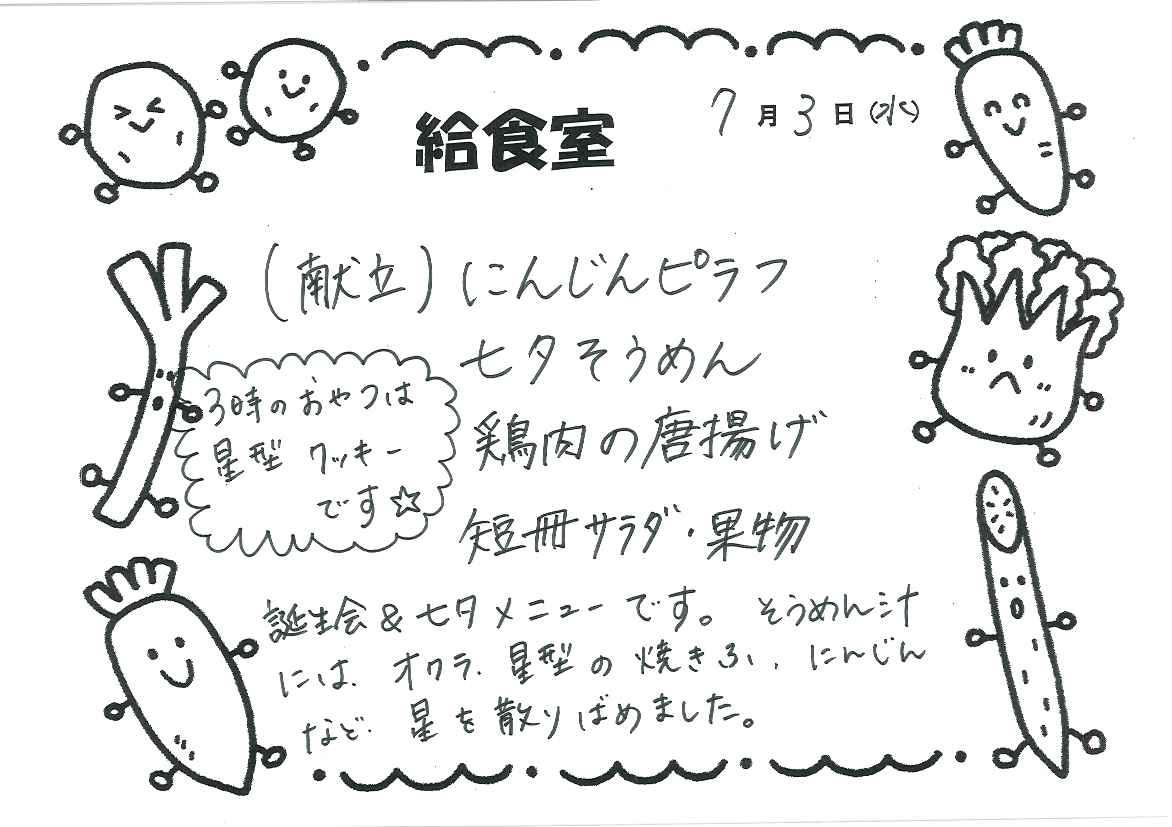 給食室
7月3日(水)
(献立) にんじんピラフ
七夕そうめん
鶏肉の唐揚げ
短冊サラダ・果物
3時のおやつは
星型クッキー
です☆
誕生会&七夕メニューです。そうめん汁
には、オクラ、星型の焼きふ、にんじん
など、星を散りばめました。